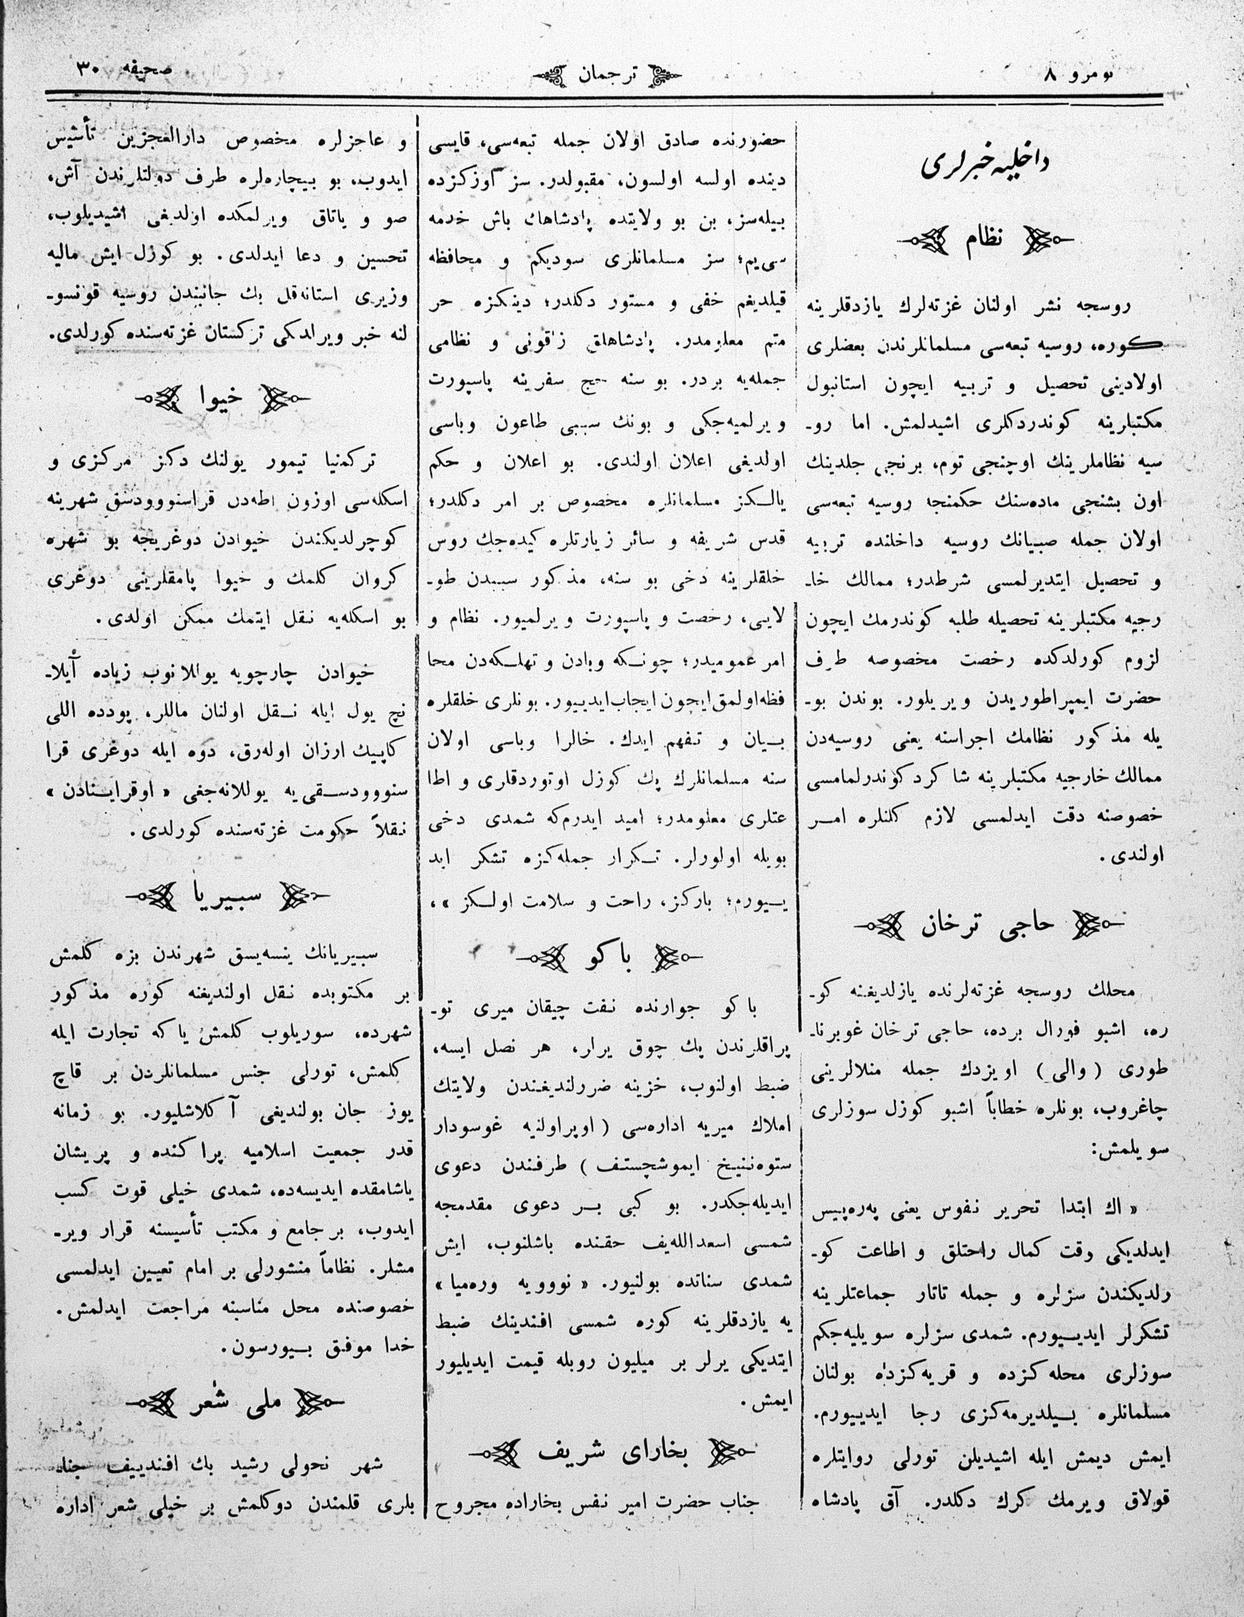 نومرو ۸
ترجمان
صحیفه ۳۰
داخلیه خبرلری
نظام
روسجه نشر اولنان غزته‌لرك یازدقلرینه
كوره، روسیه تبعه‌سی مسلمانلرندن بعضلری
اولادینی تحصیل و تربیه ایچون استانبول
مكتبلرینه كوندردكلری اشیدلمش. اما رو-
سیه نظاملرینك اوچنجی توم، برنجی جلدینك
اون بشنجی ماده‌سنك حكمنجه روسیه تبعه‌سی
اولان جمله صبیانك روسیه داخلنده تربیه
و تحصیل ایتدیرلمسی شرطدر؛ ممالك خا-
رجیه مكتبلرینه تحصیله طلبه كوندرمك ایچون
لزوم كورلدكده رخصت مخصوصه طرف
حضرت ایمپراطوریدن ویریلور. بوندن بو-
یله مذكور نظامك اجراسنه یعنی روسیه‌دن
ممالك خارجیه مكتبلرینه شاكرد كوندرلمامسی
خصوصنه دقت ایدلمسی لازم كلنلره امر
اولندی.
حاجی ترخان
محلك روسجه غزته‌لرنده یازلدیغنه كو-
ره، اشبو فورال برده، حاجی ترخان غوبرنا-
طوری (والی) اویزدك جمله منلالرینی
چاغروب، بونلره خطاباً اشبو كوزل سوزلری
سویلمش:
« اك ابتدا تحریر نفوس یعنی په‌ره‌پیس
ایدلدیكی وقت كمال راحتلق و اطاعت كو-
رلدیكندن سزلره و جمله تاتار جماعتلرینه
تشكرلر ایدییورم. شمدی سزلره سویلیه‌جكم
سوزلری محله‌كزده و قریه‌كزده بولنان
مسلمانلره بیلدیرمه‌كزی رجا ایدییورم.
ایمش دیمش ایله اشیدیلن تورلی روایتلره
قولاق ویرمك كرك دكلدر. آق پادشاه
حضورنده صادق اولان جمله تبعه‌سی، قایسی
دینده اولسه اولسون، مقبولدر. سز اوزكزده
بیله‌سز، بن بو ولایتده پادشاهك باش خدمه
سی‌یم؛ سز مسلمانلری سودیكم و محافظه
قیلدیغم خفی و مستور دكلدر؛ دینكزه حر
متم معلومدر. پادشاهلق زاقونی و نظامی
جمله‌یه بردر. بو سنه حج سفرینه پاسپورت
ویرلمیه‌جكی و بونك سببی طاعون وباسی
اولدیغی اعلان اولندی. بو اعلان و حكم
یالكز مسلمانلره مخصوص بر امر دكلدر؛
قدس شریفه و سائر زیارتلره كیده‌جك روس
خلقلرینه دخی بو سنه، مذكور سببدن طو-
لایی، رخصت و پاسپورت ویرلمیور. نظام و
امر عمومیدر؛ چونكه وبادن و تهلكه‌دن محا
فظه اولمق ایچون ایجاب ایدییور. بونلری خلقلره
بیان و تفهم ایدك. خالرا وباسی اولان
سنه مسلمانلرك پك كوزل اوتوردقلری و اطا
عتلری معلومدر؛ امید ایدرم‌كه شمدی دخی
بویله اولورلر. تكرار جمله‌كزه تشكر اید
ییورم؛ باركز، راحت و سلامت اولكز »،
باكو
باكو جوارنده نفت چیقان میری تو-
پراقلرندن پك چوق یرلر، هر نصل ایسه،
ضبط اولنوب، خزینه ضررلندیغندن ولایتك
املاك میریه اداره‌سی (اوپراولنیه غوسودار
ستوه‌ننیخ ایموشچستف) طرفندن دعوی
ایدیله‌جكدر. بو كبی بر دعوی مقدمجه
شمسی اسعدالله‌یف حقنده باشلنوب، ایش
شمدی سناتده بولنیور. « نوویه وره‌میا »
یه یازدقلرینه كوره شمسی افندینك ضبط
ایتدیكی یرلر بر میلیون روبله قیمت ایدیلیور
ایمش.
بخارای شریف
جناب حضرت امیر نفس بخاراده مجروح
و عاجزلره مخصوص دارالعجزین تأسیس
ایدوب، بو بیچاره‌لره طرف دولتلرندن آش،
صو و یاتاق ویرلمكده اولدیغی اشیدیلوب،
تحسین و دعا ایدلدی. بو كوزل ایش مالیه
وزیری استانه‌قل بك جانبندن روسیه قونسو-
لنه خبر ویرلدیكی تركستان غزته‌سنده كورلدی.
خیوا
تركمنیا تیمور یولنك دكز مركزی و
اسكله‌سی اوزون اطه‌دن قراسنووودسق شهرینه
كوچرلدیكندن خیوادن دوغریجه بو شهره
كروان كلمك و خیوا پامقلرینی دوغری
بو اسكله‌یه نقل ایتمك ممكن اولدی.
خیوادن چارجویه یوللانوب زیاده آیلا-
نچ یول ایله نقل اولنان ماللر، پودده اللی
كاپیك ارزان اوله‌رق، دوه ایله دوغری قرا
سنووودسقی‌یه یوللانه‌جغی « اوقراینادن »
نقلاً حكومت غزته‌سنده كورلدی.
سبیریا
سبیریانك ینسه‌یسق شهرندن بزه كلمش
بر مكتوبده نقل اولندیغنه كوره مذكور
شهرده، سوریلوب كلمش یاكه تجارت ایله
كلمش، تورلی جنس مسلمانلردن بر قاچ
یوز جان بولندیغی آكلاشلیور. بو زمانه
قدر جمعیت اسلامیه پراكنده و پریشان
یاشامقده ایدیسه‌ده، شمدی خیلی قوت كسب
ایدوب، بر جامع و مكتب تأسیسنه قرار ویر-
مشلر. نظاماً منشورلی بر امام تعیین ایدلمسی
خصوصنده محل مناسبنه مراجعت ایدلمش.
خدا موفق بیورسون.
ملی شعر
شهر نحولی رشید بك افندییف جنا
بلری قلمندن دوكلمش بر خیلی شعر اداره